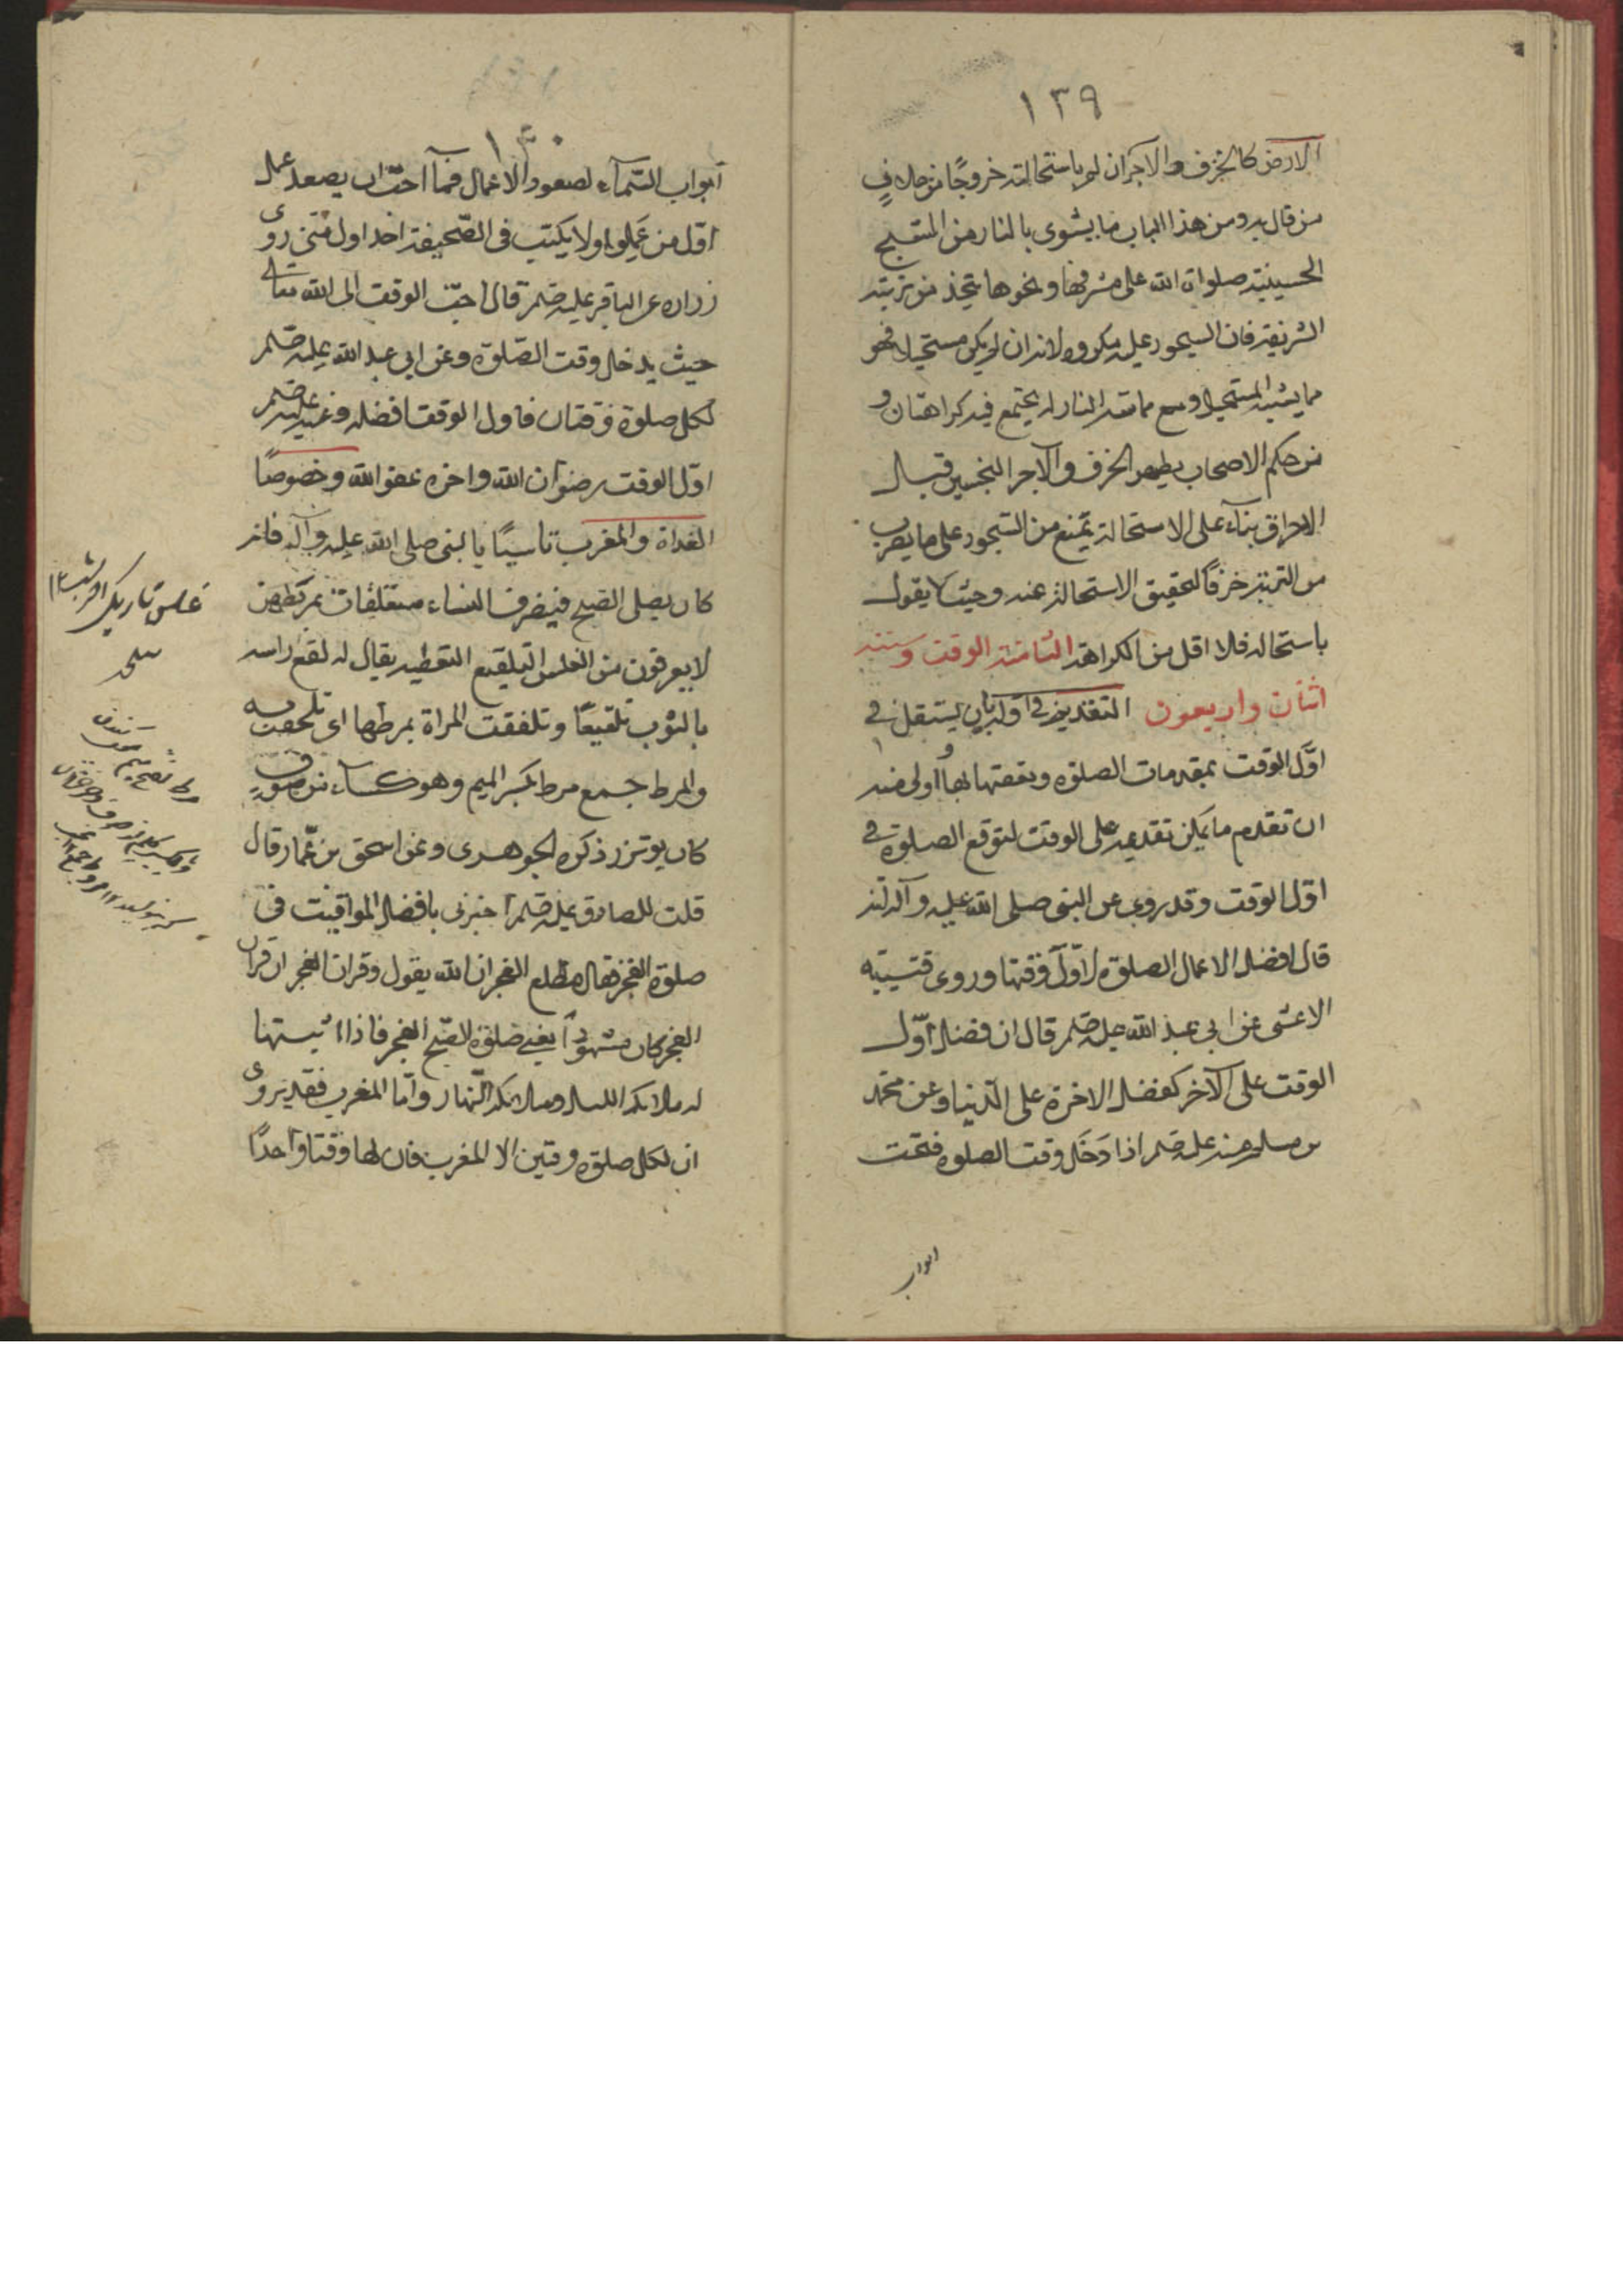 ١٣٩
الارض كالخزف والآجر ان لم باستحالته خروجًا من خلاف
من قال به ومن هذا الباب ما يشوى بالنار من السبح
الحسينية صلوات الله على مشرفها ونحوها يتخذ من تربته
الشريفة فان السجود عليه مكروه لانه ان لم يكن مستحيلا فهو
مما يشبه المستحيل ومع مماسه النار له يجتمع فيه كراهتان و
من حكم الاصحاب بطهر الخزف والآجر النجسين قبال
الاحراق بناء على الاستحالة يمنع من السجود على ما يضرب
من التربة خزفًا لتحقيق الاستحالة عنده وحيث لا يقول
باستحاله فلا اقل من الكراهة الثامنة الوقت وسننه
اثنان واربعون التقديم في اوله بان يستقل في
اوّل الوقت بمقدمات الصلوة وتعقتها بها و اولى منه
ان تقدم ما يمكن تقديمه على الوقت لتوقع الصلوة في
اوّل الوقت وقد روى عن النبى صلى الله عليه وآله انه
قال افضل الاعمال الصلوة لاوّل وقتها وروى قتيبه
الاعشى عن ابى عبد الله عليه السلم قال ان فضل اوّل
الوقت على الآخر كفضل الاخرة على الدنيا وعن محمد
بن مسلم عنه عليه السلم اذا دَخَل وقت الصلوة فتحت
ابواب
١٣٠
ابواب السّماء لصعود الاعمال فما احبّ ان يصعد عمل
اوّل من عملى ولا يكتب فى الصّحيفة احد اول منّى روى
زراره عن الباقر عليه السلم قال احبّ الوقت الى الله تعالى
حيث يدخل وقت الصّلوة وعن ابى عبد الله عليه السلم
لكل صلوة وقتان فاول الوقت افضله وعنه عليه السلم
اوّل الوقت رضوان الله واخره عفو الله وخصوصًا
الغداة والمغرب تاسيًا بالنبى صلى الله عليه وآله فانه
كان يصلى الصبح فينصرف النساء متلفعات بمروطهن
لا يعرفون من الغلس التلفيع التغطيه يقال له لفع راسه
بالثوب تلفيعًا وتلفعت المراة بمرطها اى تلحفت به
والمرط جمع مرط بكسر الميم وهو كساء من صوف
كان يوتزر ذكره الجوهرى وعن اسحق بن عمّار قال
قلت للصادق عليه السلم اخبرنى بافضل المواقيت فى
صلوة الفجر فقال مع طلوع الفجر ان الله يقول وقران الفجر ان قران
الفجر كان مشهودًا يعنى صلوة الصّبح الفجر فاذا اثبتها
له ملائكه الليل وملائكه النّهار وامّا المغرب فقد يروى
ان لكل صلوة وقتين الا المغرب فان لها وقتا واحدًا
غلس تاريكى اخر شب ١٢